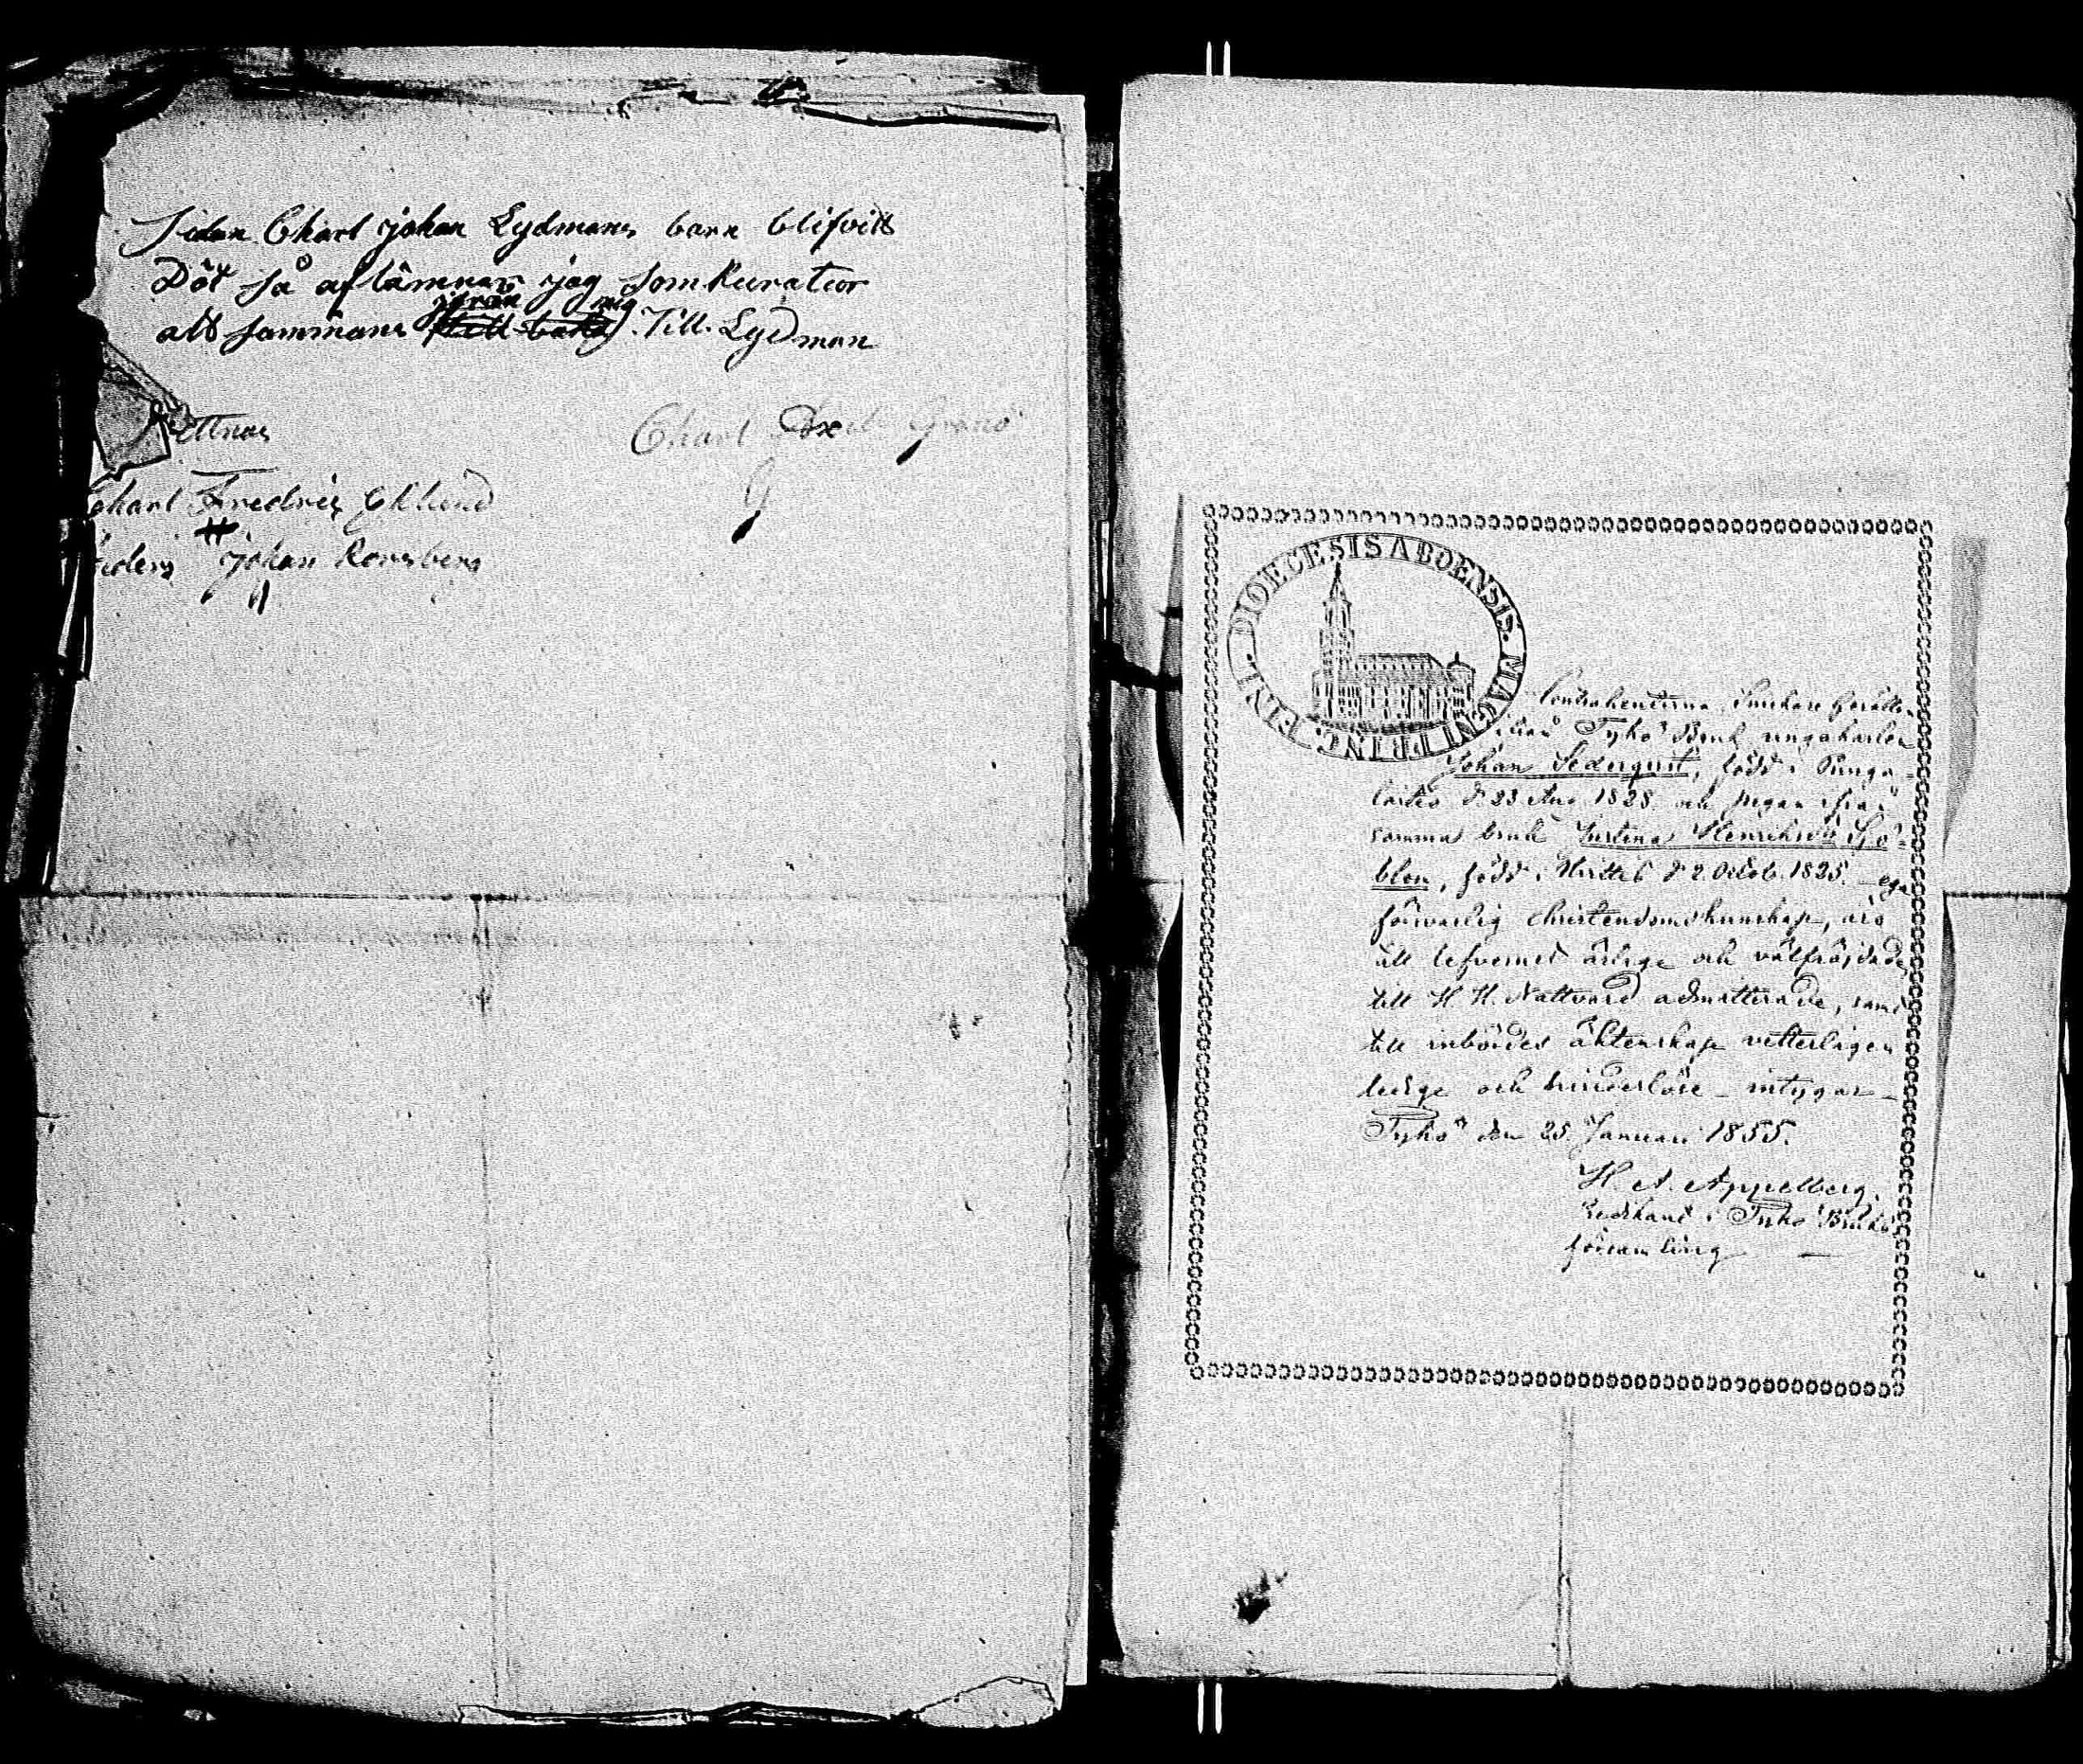 Sidan Charl johan Lydmans barn blifvitt
Döt så aflämnar jag som Kurator
ifrån mig
alt sammans till baka Till Lydman
Charl Axel Grönö
Vittnar
Charl Fredric Eklund
johan Ramsberg
DIOECESIS ABOENSIS. MAGNI PRINC. FINL.
Contrahenterna, Smideare Gesällen
ifrån Tykö Bruk ungakarlen
Johan Sederqvist, född i Punga-
laitio d 23 Aug. 1828. och pigan ifrån
samma bruk Justina Henriksdr Sjö-
blom, född i Hvittis d 2. Octob. 1825. ega
försvarlig christendomskunskap, äro
till lefvernet ärlige och välfräjdade
till H. H. Nattvard admitterade, samt
till inbördes äktenskap vetterligen
ledige och hinderlöse – intygar –
Tykö den 25. Januari 1855.
H. A. Appelberg.
Predikant i Tykö Bruks
församling